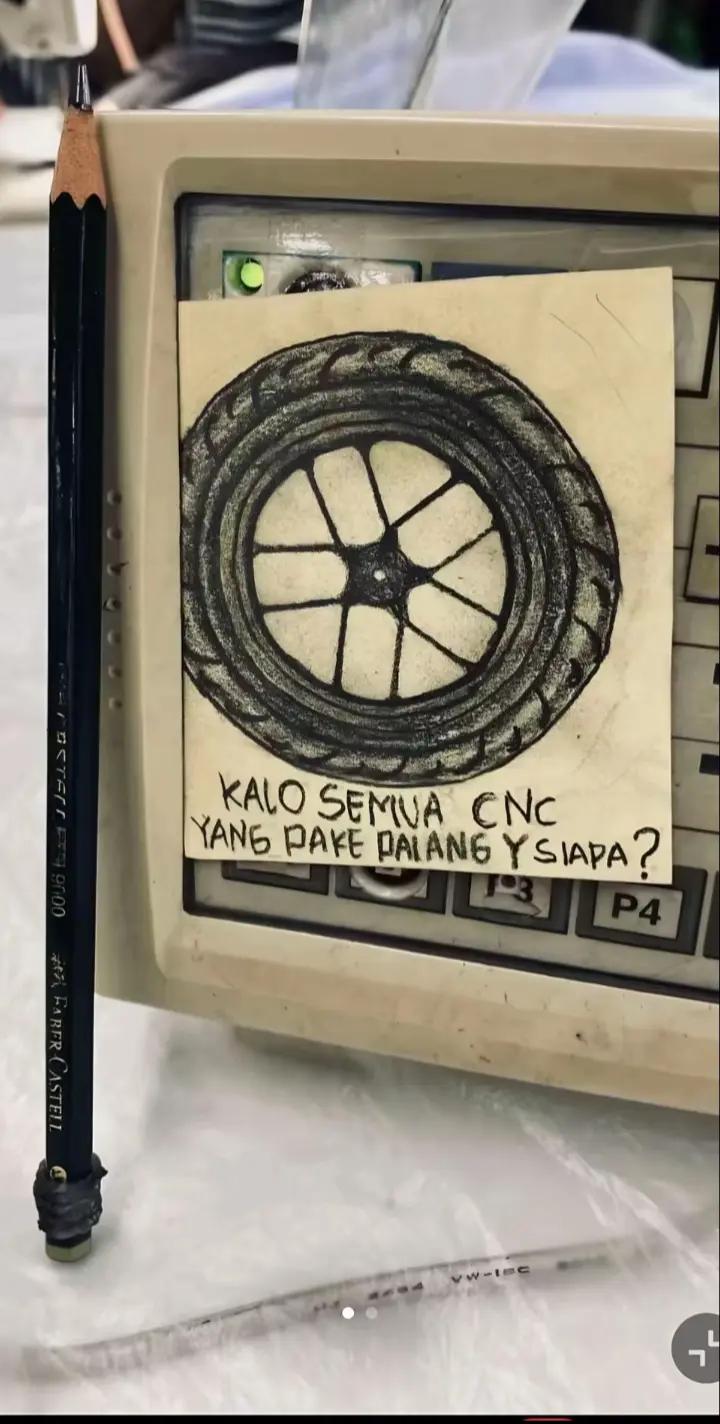 KALO SEMUA CNC
YANG PAKE PALANG Y SIAPA?
P3
P4
9000
FABER-CASTELL
VW-1